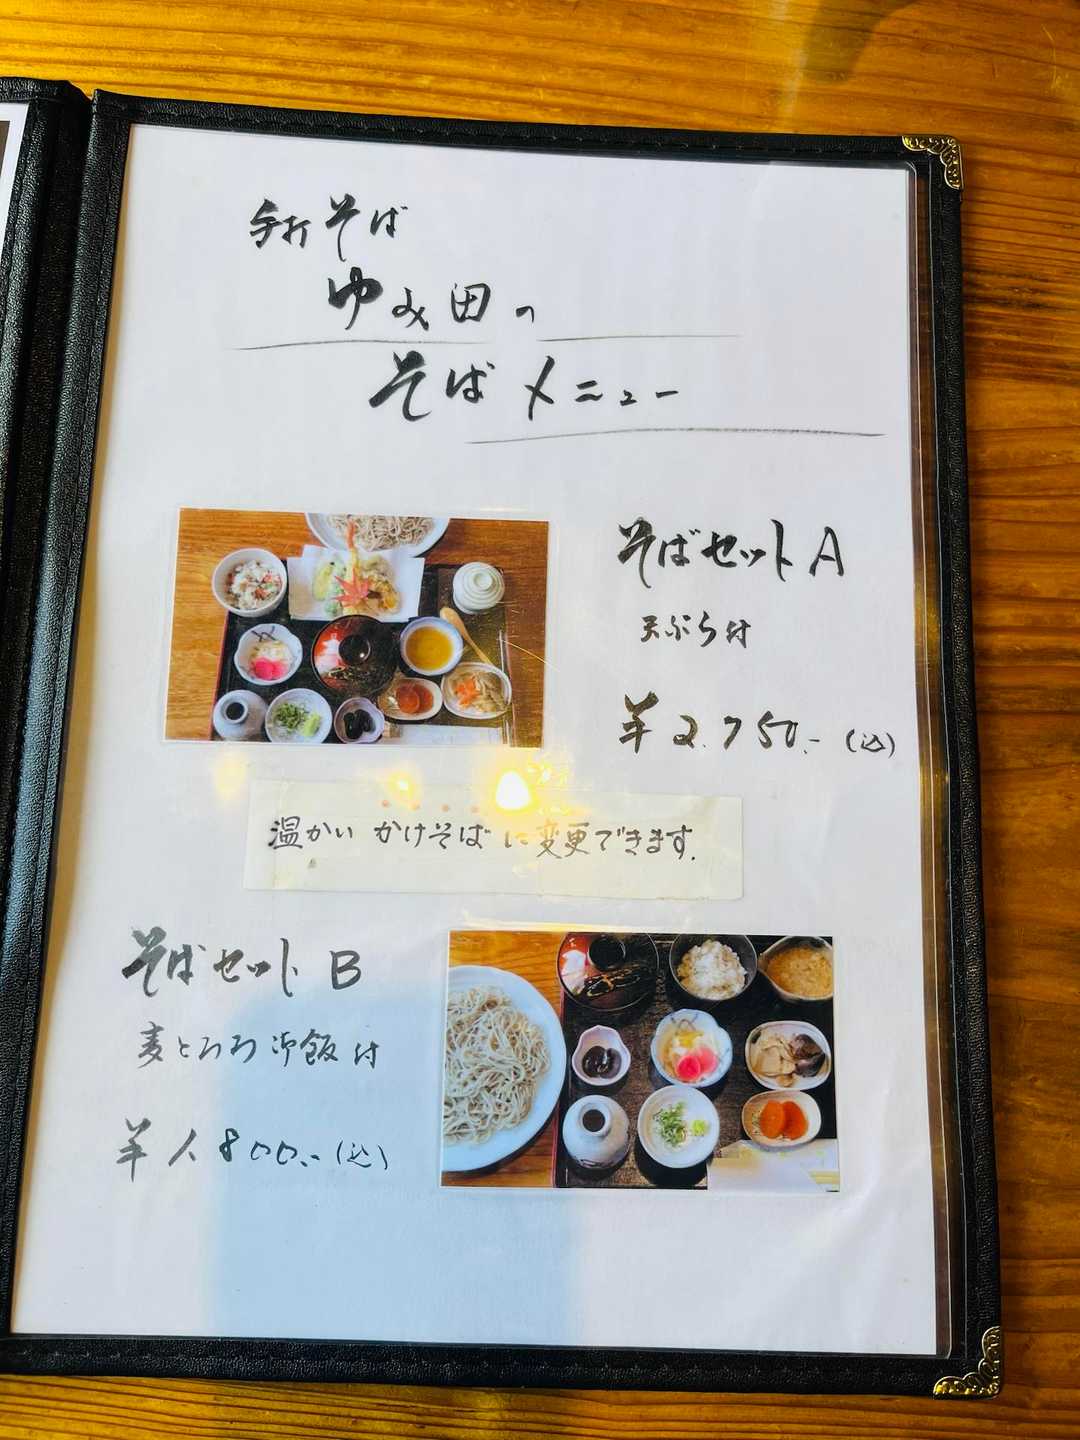 手打そば
ゆみ田の
そばメニュー
そばセットA
天ぷら付
¥2,750.-(込)
温かい かけそばに変更できます.
そばセット B
麦とろろ御飯付
¥1,800.-(込)